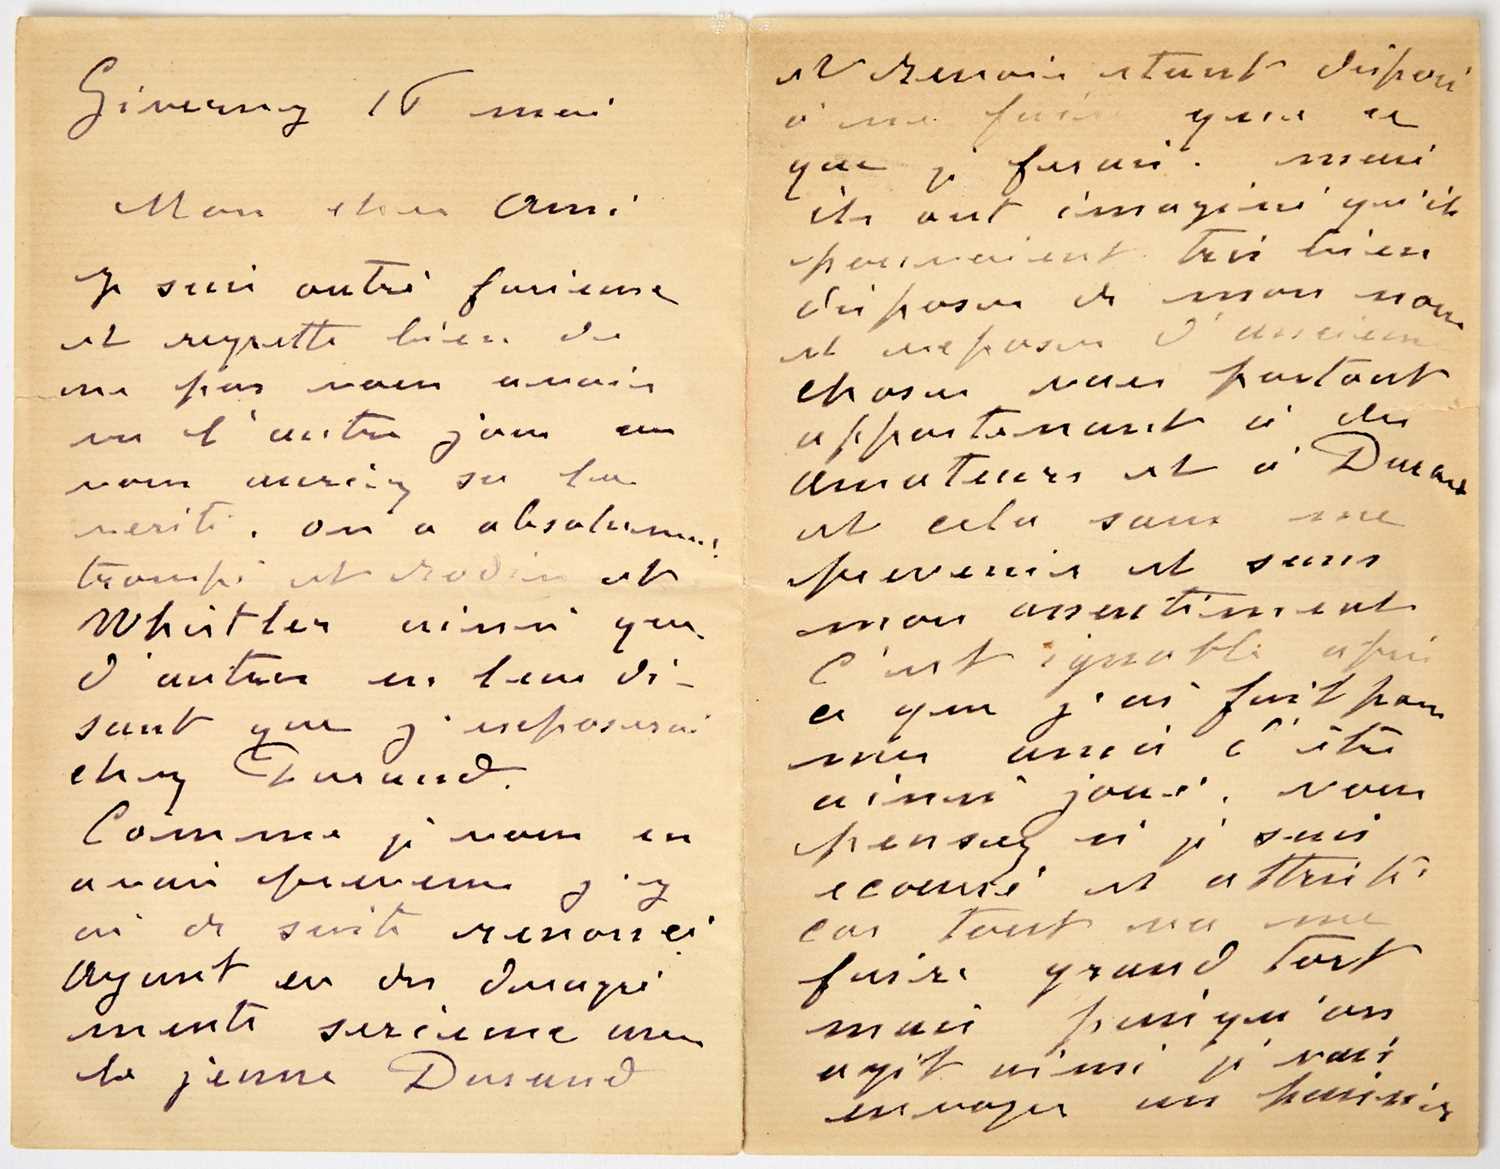 Giverny 16 mai
Mon cher Ami
Je suis outré furieux
et regrette bien de
ne pas vous avoir
vu l'autre jour car
vous auriez su la
verité. on a absolument
trompé et Rodin et
Whistler ainsi que
d'autres en leur di-
sant que j'exposerai
chez Durand.
Comme je vous en
avais prevenu j'y
ai de suite renoncé
ayant eu des desagré
ments serieux avec
le jeune Durand
et Renoir étant disposé
à ne faire que ce
que je ferai. mais
ils ont imaginé qu'ils
pouvaient très bien
disposer de mon nom
et exposer d'anciennes
choses vues partout
appartenant à des
amateurs et à Durand
et cela sans me
prevenir et sans
mon assentiment
C'est ignoble après
ce que j'ai fait pour
mes amis d'être
ainsi joué. vous
pensez si je suis
ecœuré et attristé
car tout va me
faire grand tort
mais puisqu'on
agit ainsi je vais
envoyer un huissier